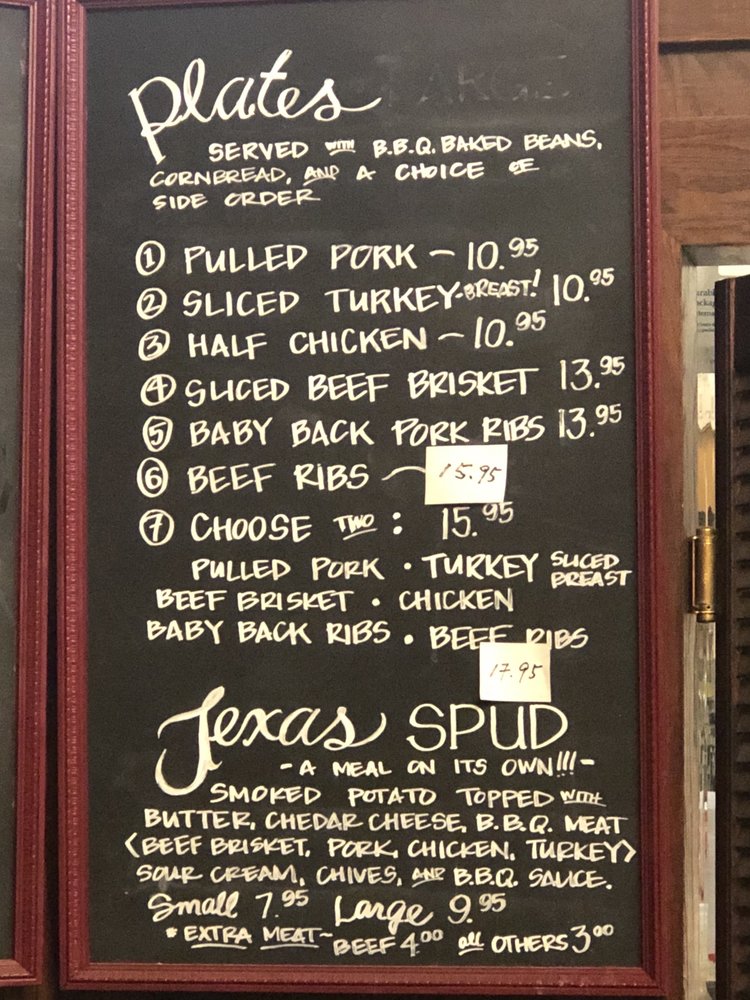 Plates
SERVED WITH B.B.Q. BAKED BEANS,
CORNBREAD, AND A CHOICE OF
SIDE ORDER
① PULLED PORK – 10.95
② SLICED TURKEY-BREAST! 10.95
③ HALF CHICKEN – 10.95
④ SLICED BEEF BRISKET 13.95
⑤ BABY BACK PORK RIBS 13.95
⑥ BEEF RIBS – 15.95
⑦ CHOOSE TWO : 15.95
PULLED PORK • TURKEY SLICED BREAST
BEEF BRISKET • CHICKEN
BABY BACK RIBS • BEEF RIBS
17.95
Texas SPUD
- A MEAL ON ITS OWN!!! -
SMOKED POTATO TOPPED WITH
BUTTER, CHEDAR CHEESE, B.B.Q. MEAT
<BEEF BRISKET, PORK, CHICKEN, TURKEY>
SOUR CREAM, CHIVES, AND B.B.Q. SAUCE.
Small 7.95 Large 9.95
* EXTRA MEAT~ BEEF 4.00 all OTHERS 3.00